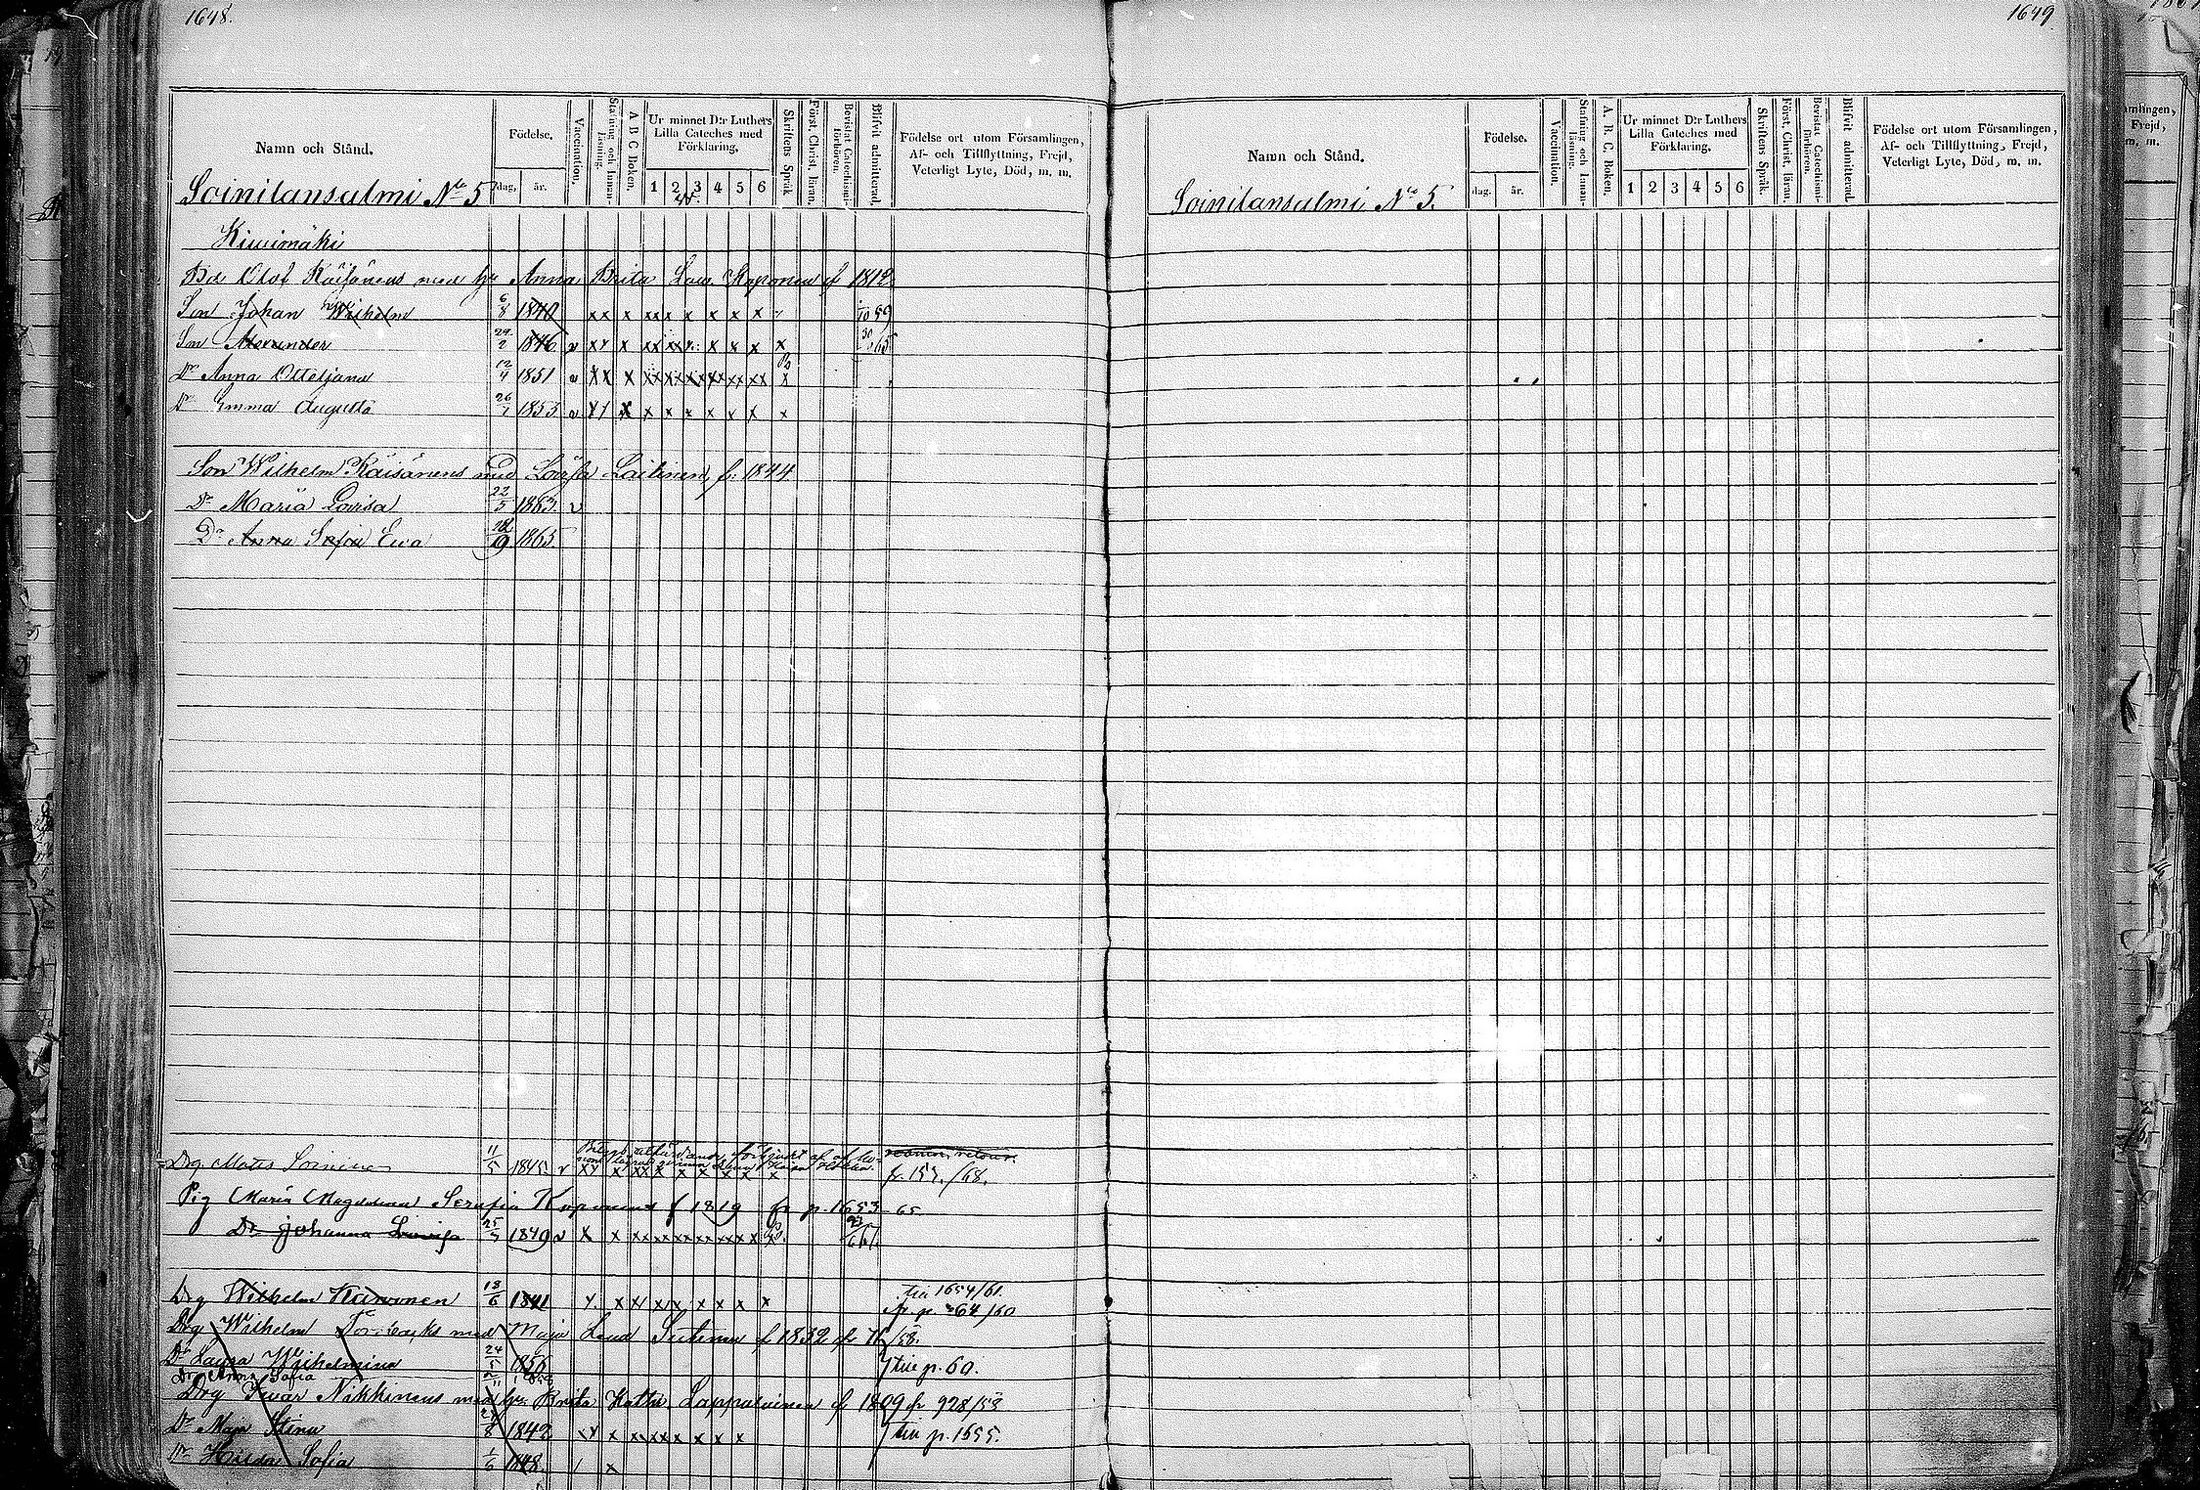 1648.
Namn och Stånd.
Födelse.
dag. år.
Vaccination.
Stafning och Innan-läsning.
A B C Boken.
Ur minnet D:r Luthers
Lilla Cateches med
Förklaring.
1 2 3 4 5 6
Skriftens Språk
Först. Christ. läran.
Bevistat Catechismi-förhören.
Blifvit admitterad.
Födelse ort utom Församlingen,
Af- och Tillflyttning, Frejd,
Veterligt Lyte, Död, m. m.
Soinilansalmi No 5
Kiwimäki
Bd Olof Käisänens med hu Anna Brita Koponen f 1812
Son Johan Wilhelm 6/8 1840 x x x x x x x x x x 59
Son Alexander 29/2 1846 v x x x x x x x x x x 30 65
Dr Anna Otteljana 12/4 1851 v x x x x x x x x x x
Dr Emma Augusta 26/7 1853 v x x x x x x x x x x
Son Wilhelm Käisänens med Lovisa Laitinen f. 1844
Dr Maria Lovisa 22/5 1863 v
Dr Anna Sofia Ewa 1865
Drg Mats Soininen 11/5 1845 v x x x x x x x x x x
fr. 157./68.
Pig Maria Magdalena Serafia Koponens f 1819 fr p. 1653 65
Dr Johanna Lovisa 25/3 1849 v x x x x x x x x x 67.
Drg Wilhelm 18/6 1841 x x x x x x x x
till 1654/61.
fr. p. 64/60
Drg Wilhelm med Maja Lena f 1832 fr 76/58.
Dr Laura Wilhelmina 24/5 1856
till p. 60.
Dr Anna Sofia
Drg Iwar Nikkinens med hu Brita Kath. Lappalainen f 1809 fr 928/53
Dr Maja Stina 1842 x x x x x x x x
till p. 1655.
Dr Hilda Sofia 1/6 1848. x
1649
Namn och Stånd.
Födelse.
dag. år.
Vaccination.
Stafning och Innan-läsning.
A. B. C. Boken.
Ur minnet D:r Luthers
Lilla Cateches med
Förklaring.
1 2 3 4 5 6
Skriftens Språk.
Först. Christ. läran.
Bevistat Catechismi-förhören.
Blifvit admitterad.
Födelse ort utom Församlingen,
Af- och Tillflyttning, Frejd,
Veterligt Lyte, Död, m. m.
Soinilansalmi No 5.